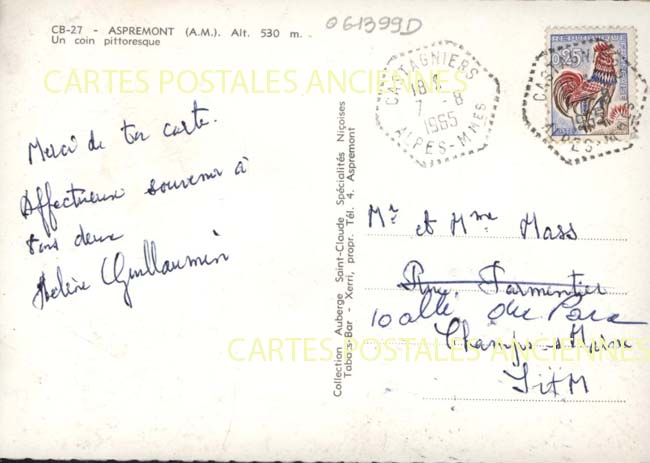 CB-27 - ASPREMONT (A.M.). Alt. 530 m.
Un coin pittoresque
061399D
CARTES POSTALES ANCIENNES
CASTAGNIERS
18H
7 - 8
1965
ALPES-MMES
0,25
Merci de ta carte.
Affectueux souvenir à
tous deux
Hélène Guillaumin
Collection Auberge Saint-Claude Spécialités Niçoises
Tabacs-Bar - Xerri, propr. Tél. 4. Aspremont
Mr et Mme Mass
Rue Parmentier
10 allé du Parc
Champs-s-Marne
S et M
CARTES POSTALES ANCIENNES